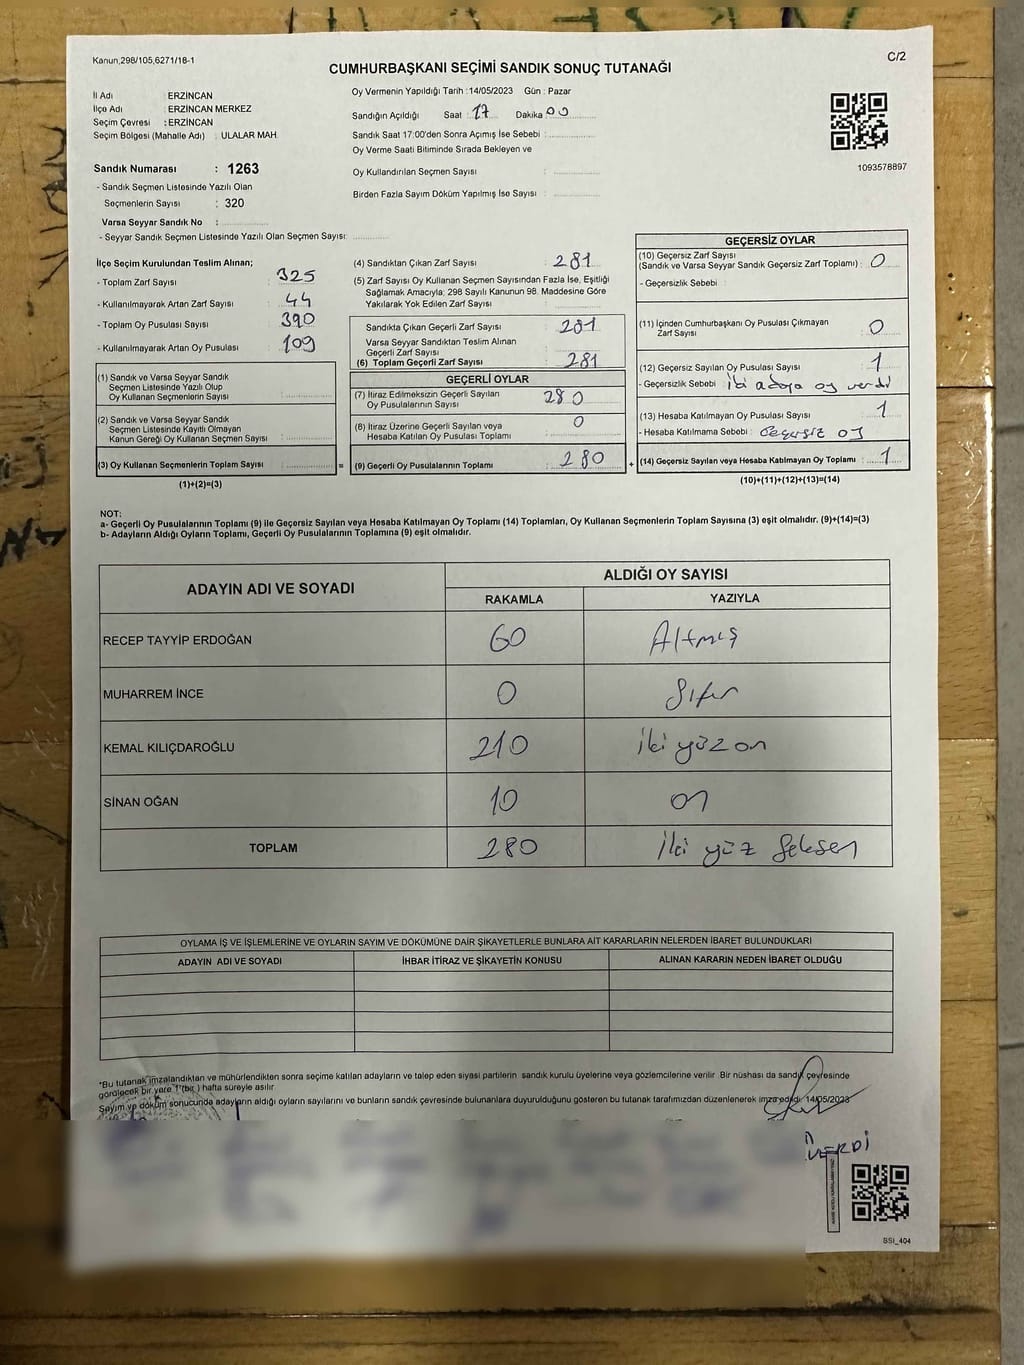 Kanun,298/105,6271/18-1
C/2
CUMHURBAŞKANI SEÇİMİ SANDIK SONUÇ TUTANAĞI
İl Adı : ERZİNCAN
İlçe Adı : ERZİNCAN MERKEZ
Seçim Çevresi : ERZİNCAN
Seçim Bölgesi (Mahalle Adı) : ULALAR MAH.
Sandık Numarası : 1263
- Sandık Seçmen Listesinde Yazılı Olan
Seçmenlerin Sayısı : 320
Varsa Seyyar Sandık No :
- Seyyar Sandık Seçmen Listesinde Yazılı Olan Seçmen Sayısı:
Oy Vermenin Yapıldığı Tarih :14/05/2023 Gün : Pazar
Sandığın Açıldığı Saat : 17 Dakika : 00
Sandık Saat 17:00'den Sonra Açımış İse Sebebi :
Oy Verme Saati Bitiminde Sırada Bekleyen ve
Oy Kullandırılan Seçmen Sayısı :
Birden Fazla Sayım Döküm Yapılmış İse Sayısı :
1093578897
İlçe Seçim Kurulundan Teslim Alınan;
- Toplam Zarf Sayısı : 325
- Kullanılmayarak Artan Zarf Sayısı : 44
- Toplam Oy Pusulası Sayısı : 390
- Kullanılmayarak Artan Oy Pusulası : 109
(1) Sandık ve Varsa Seyyar Sandık
Seçmen Listesinde Yazılı Olup
Oy Kullanan Seçmenlerin Sayısı :
(2) Sandık ve Varsa Seyyar Sandık
Seçmen Listesinde Kayıtlı Olmayan
Kanun Gereği Oy Kullanan Seçmen Sayısı :
(3) Oy Kullanan Seçmenlerin Toplam Sayısı :
(1)+(2)=(3)
=
(4) Sandıktan Çıkan Zarf Sayısı : 281
(5) Zarf Sayısı Oy Kullanan Seçmen Sayısından Fazla İse, Eşitliği
Sağlamak Amacıyla; 298 Sayılı Kanunun 98. Maddesine Göre
Yakılarak Yok Edilen Zarf Sayısı :
Sandıkta Çıkan Geçerli Zarf Sayısı : 281
Varsa Seyyar Sandıktan Teslim Alınan
Geçerli Zarf Sayısı :
(6) Toplam Geçerli Zarf Sayısı : 281
GEÇERLİ OYLAR
(7) İtiraz Edilmeksizin Geçerli Sayılan
Oy Pusulalarının Sayısı : 280
(8) İtiraz Üzerine Geçerli Sayılan veya
Hesaba Katılan Oy Pusulası Toplamı : 0
(9) Geçerli Oy Pusulalarının Toplamı : 280
+
GEÇERSİZ OYLAR
(10) Geçersiz Zarf Sayısı
(Sandık ve Varsa Seyyar Sandık Geçersiz Zarf Toplamı) : 0
- Geçersizlik Sebebi :
(11) İçinden Cumhurbaşkanı Oy Pusulası Çıkmayan
Zarf Sayısı : 0
(12) Geçersiz Sayılan Oy Pusulası Sayısı : 1
- Geçersizlik Sebebi : iki adaya oy verdi
(13) Hesaba Katılmayan Oy Pusulası Sayısı : 1
- Hesaba Katılmama Sebebi : Geçersiz oy
(14) Geçersiz Sayılan veya Hesaba Katılmayan Oy Toplamı : 1
(10)+(11)+(12)+(13)=(14)
NOT:
a- Geçerli Oy Pusulalarının Toplamı (9) ile Geçersiz Sayılan veya Hesaba Katılmayan Oy Toplamı (14) Toplamları, Oy Kullanan Seçmenlerin Toplam Sayısına (3) eşit olmalıdır. (9)+(14)=(3)
b- Adayların Aldığı Oyların Toplamı, Geçerli Oy Pusulalarının Toplamına (9) eşit olmalıdır.
ADAYIN ADI VE SOYADI
ALDIĞI OY SAYISI
RAKAMLA YAZIYLA
RECEP TAYYİP ERDOĞAN 60 Altmış
MUHARREM İNCE 0 Sıfır
KEMAL KILIÇDAROĞLU 210 iki yüz on
SİNAN OĞAN 10 on
TOPLAM 280 iki yüz Seksen
OYLAMA İŞ VE İŞLEMLERİNE VE OYLARIN SAYIM VE DÖKÜMÜNE DAİR ŞİKAYETLERLE BUNLARA AİT KARARLARIN NELERDEN İBARET BULUNDUKLARI
ADAYIN ADI VE SOYADI İHBAR İTİRAZ VE ŞİKAYETİN KONUSU ALINAN KARARIN NEDEN İBARET OLDUĞU
*Bu tutanak imzalandıktan ve mühürlendikten sonra seçime katılan adayların ve talep eden siyasi partilerin sandık kurulu üyelerine veya gözlemcilerine verilir. Bir nüshası da sandık çevresinde
görülecek bir yere 1 (bir) hafta süreyle asılır.
Sayım ve döküm sonucunda adayların aldığı oyların sayılarını ve bunların sandık çevresinde bulunanlara duyurulduğunu gösteren bu tutanak tarafımızdan düzenlenerek imza edildi. 14/05/2023
VERDİ
SSI_404